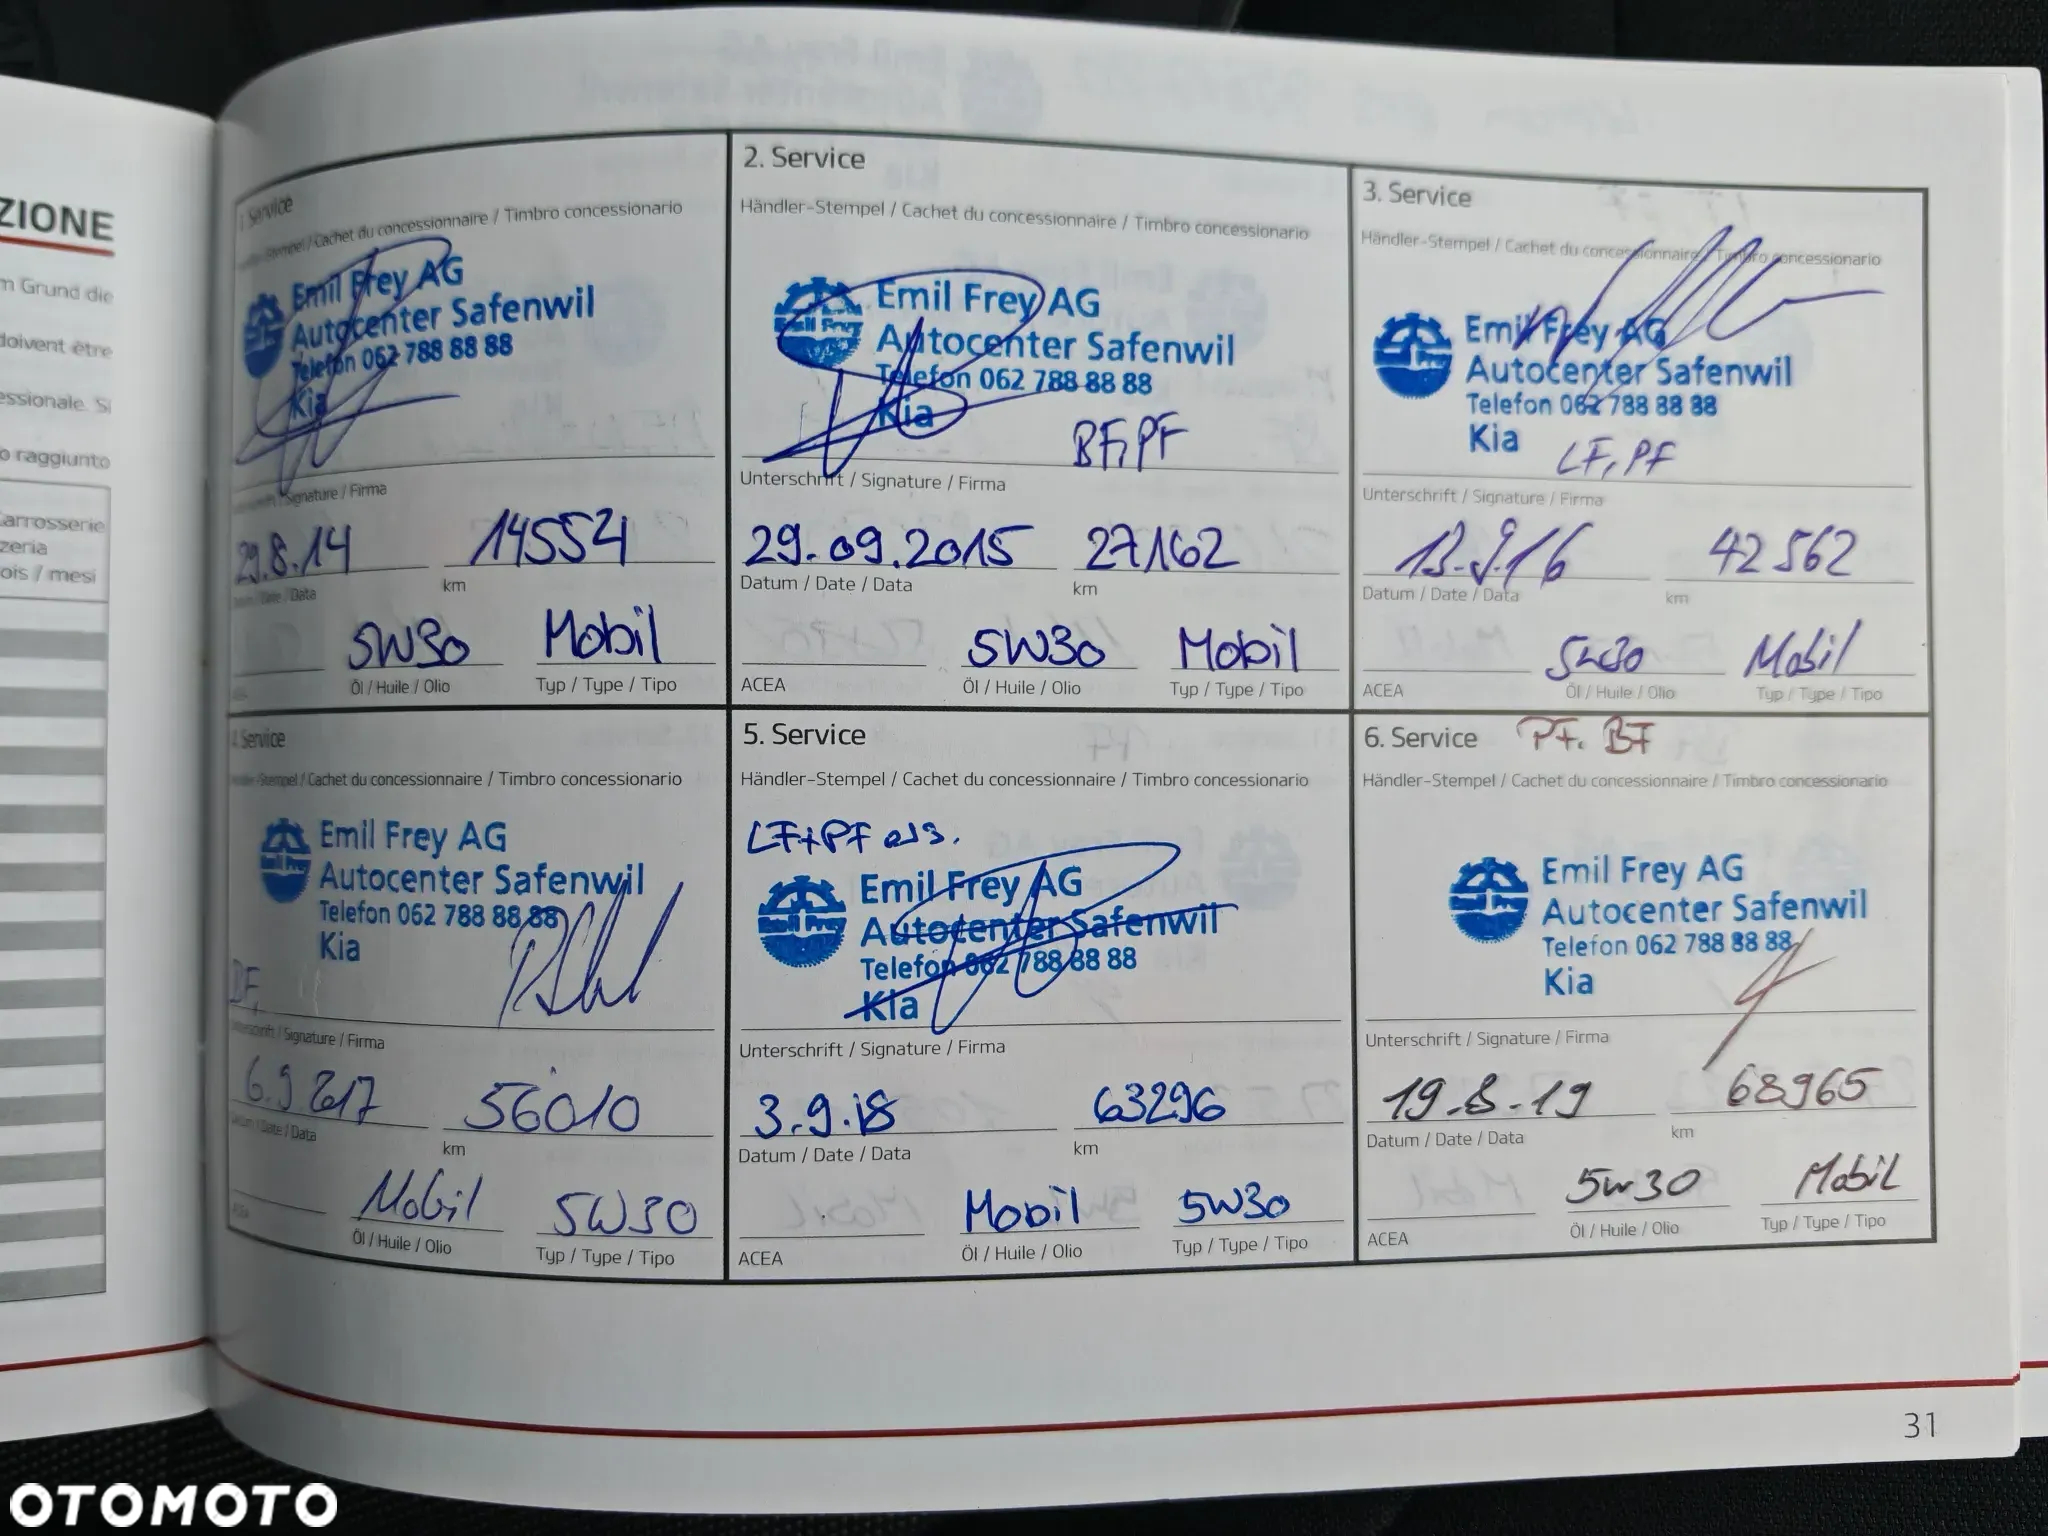 ZIONE
m Grund die
doivent être
essionale. Si
o raggiunto
arrosserie
zeria
ois / mesi
1. Service
Stempel / Cachet du concessionnaire / Timbro concessionario
Emil Frey AG
Autocenter Safenwil
Telefon 062 788 88 88
Kia
Signature / Firma
29.8.14 14554
Date / Data km
5W30 Mobil
Öl / Huile / Olio Typ / Type / Tipo
2. Service
Händler-Stempel / Cachet du concessionnaire / Timbro concessionario
Emil Frey
Emil Frey AG
Autocenter Safenwil
Telefon 062 788 88 88
Kia
BF, PF
Unterschrift / Signature / Firma
29.09.2015 27162
Datum / Date / Data km
5W30 Mobil
ACEA Öl / Huile / Olio Typ / Type / Tipo
3. Service
Händler-Stempel / Cachet du concessionnaire / Timbro concessionario
Emil Frey AG
Autocenter Safenwil
Telefon 062 788 88 88
Kia
LF, PF
Unterschrift / Signature / Firma
13.9.16 42562
Datum / Date / Data km
5w30 Mobil
ACEA Öl / Huile / Olio Typ / Type / Tipo
4. Service
Stempel / Cachet du concessionnaire / Timbro concessionario
Emil Frey
Emil Frey AG
Autocenter Safenwil
Telefon 062 788 88 88
Kia
BF,
Signature / Firma
6.9.2017 56010
Date / Data km
Mobil 5W30
ACEA Öl / Huile / Olio Typ / Type / Tipo
5. Service
Händler-Stempel / Cachet du concessionnaire / Timbro concessionario
LF+PF ers.
Emil Frey
Emil Frey AG
Autocenter Safenwil
Telefon 062 788 88 88
Kia
Unterschrift / Signature / Firma
3.9.18 63296
Datum / Date / Data km
Mobil 5W30
ACEA Öl / Huile / Olio Typ / Type / Tipo
6. Service PF. BF
Händler-Stempel / Cachet du concessionnaire / Timbro concessionario
Emil Frey
Emil Frey AG
Autocenter Safenwil
Telefon 062 788 88 88
Kia
Unterschrift / Signature / Firma
19.8.19 68965
Datum / Date / Data km
5w30 Mobil
ACEA Öl / Huile / Olio Typ / Type / Tipo
31
OTOMOTO